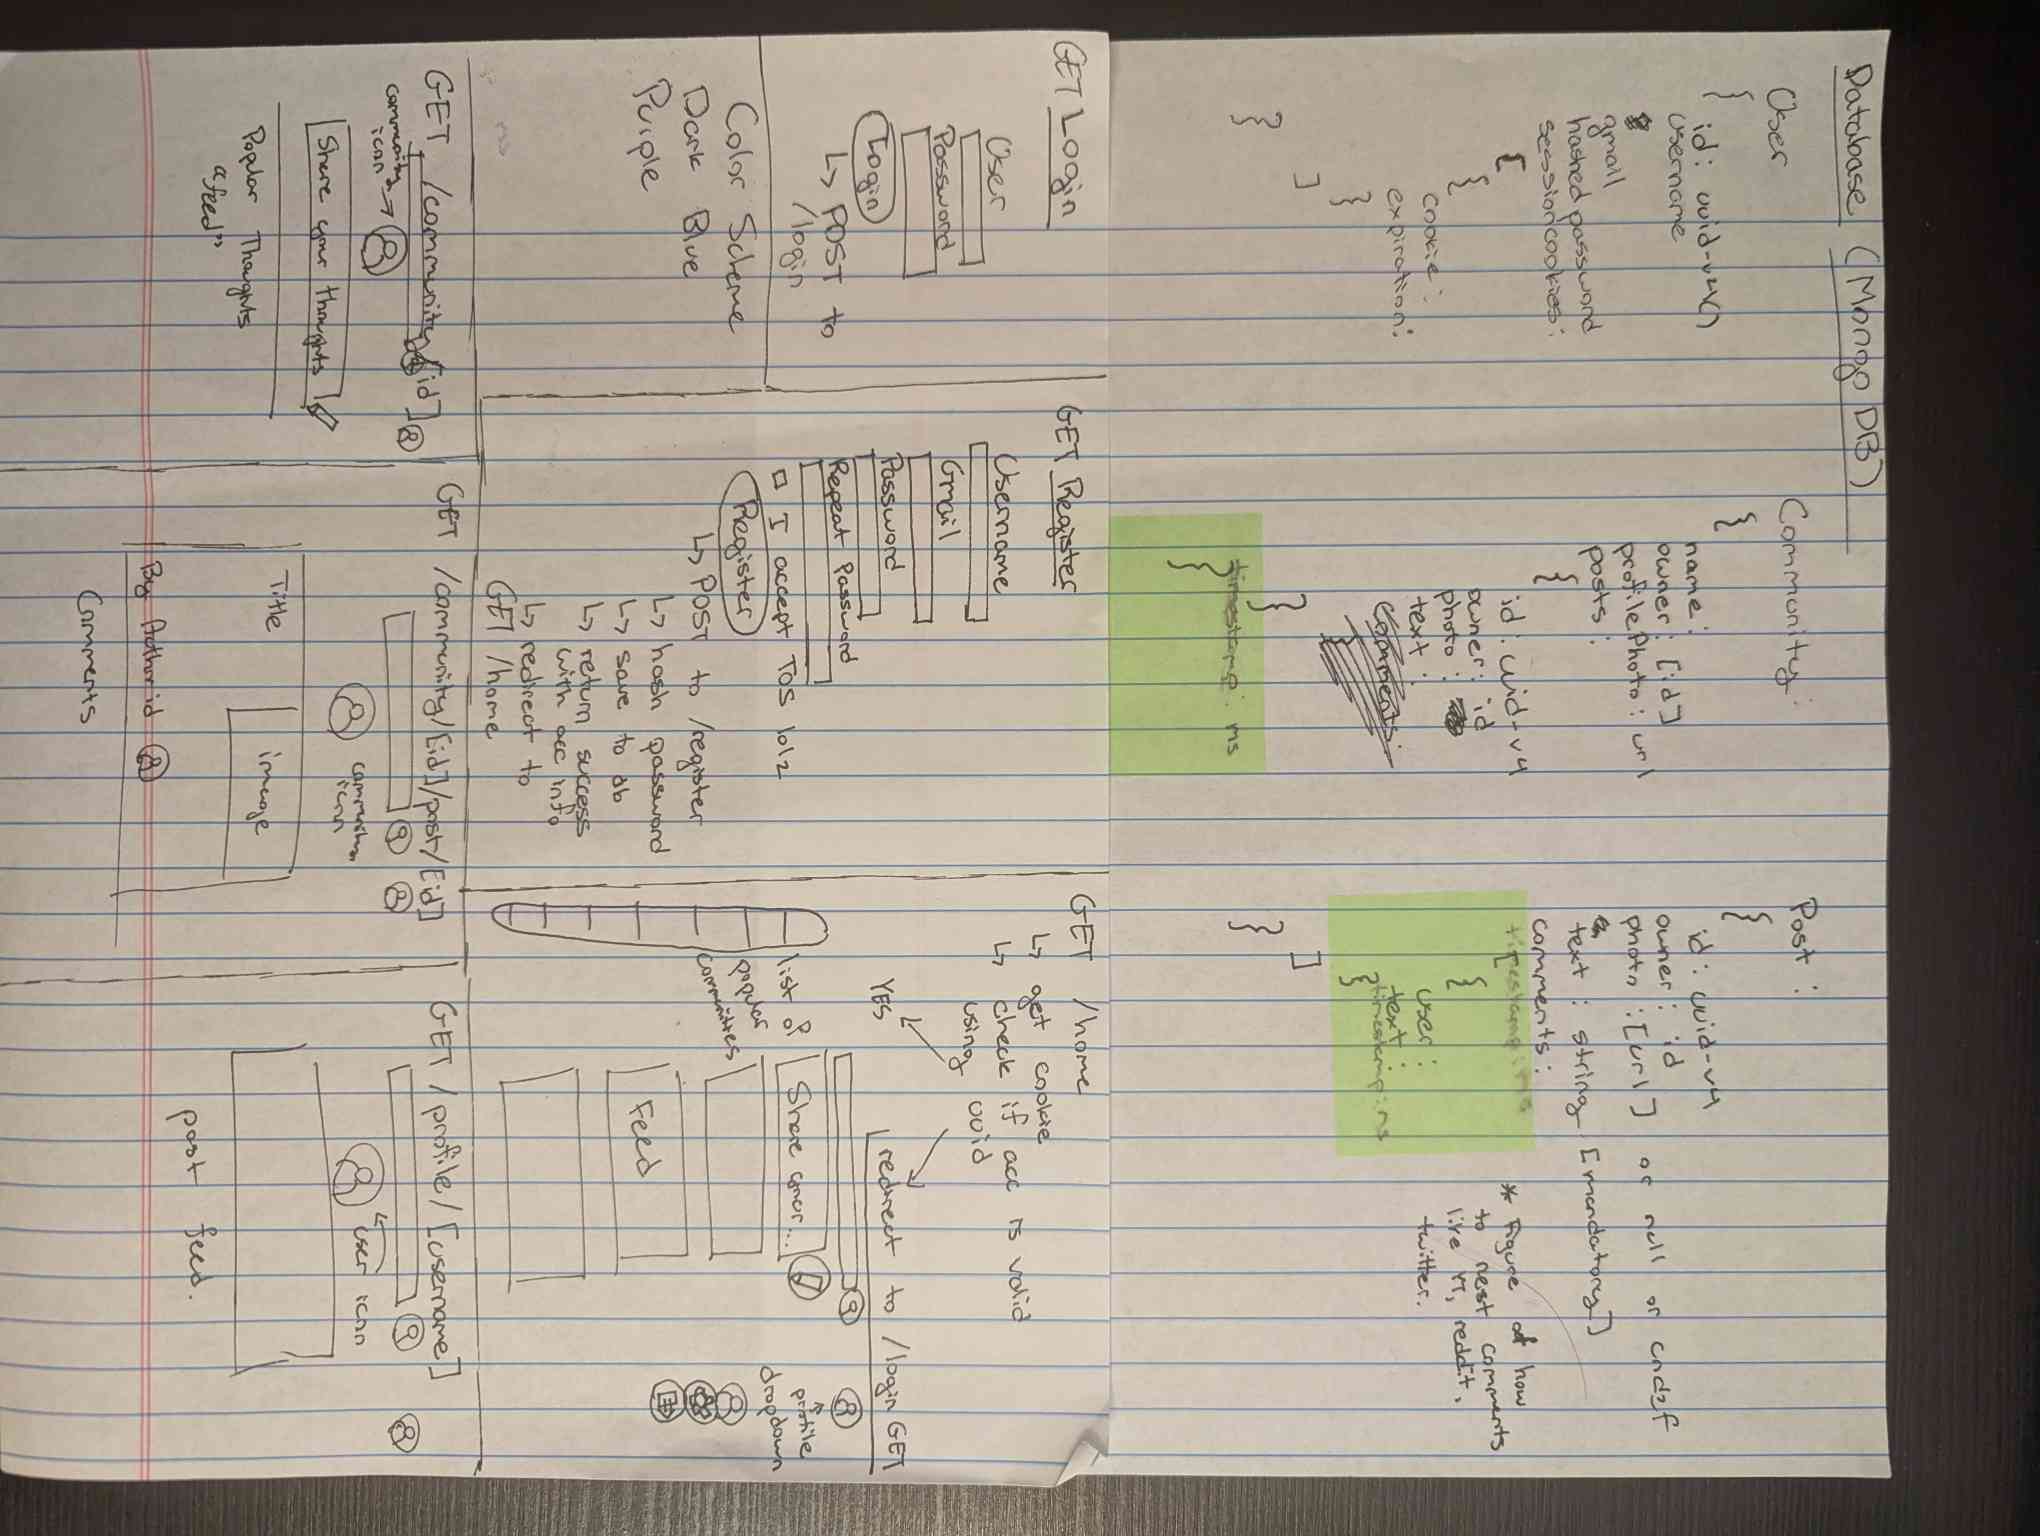 Database (MongoDB)
User
{
id: uuid-v4()
username
gmail
hashed password
session cookies:
[
{
cookie:
expiration:
}
]
}
Community:
{
name:
owner: [id]
profile photo: url
posts:
{
id: uuid-v4
owner: id
photo:
text:
comments:
}
timestamp: ms
}
Post:
{
id: uuid-v4
owner: id
photo: [url] or null or undef
text: string [mandatory]
comments:
timestamp: ms
[
{
user:
text:
timestamp: ms
}
]
}
* Figure how
to nest comments
like YT, reddit,
twitter.
GET Login
User
Password
Login
↳ POST to
/login
Color Scheme
Dark Blue
Purple
GET Register
Username
Gmail
Password
Repeat Password
□ I accept TOS lolz
Register
↳ POST to /register
↳ hash password
↳ save to db
↳ return success
with acc info
↳ redirect to
GET /home
GET /home
↳ get cookie
↳ check if acc is valid
using uuid
YES
redirect to /login GET
list of
popular
communities
Share your...
Feed
profile
dropdown
GET /community/[id]
community
icon →
Share your thoughts
Popular Thoughts
"feed"
GET /community/[id]/post/[id]
community
icon
Title
image
By Author id
Comments
GET /profile/[username]
user icon
post feed.